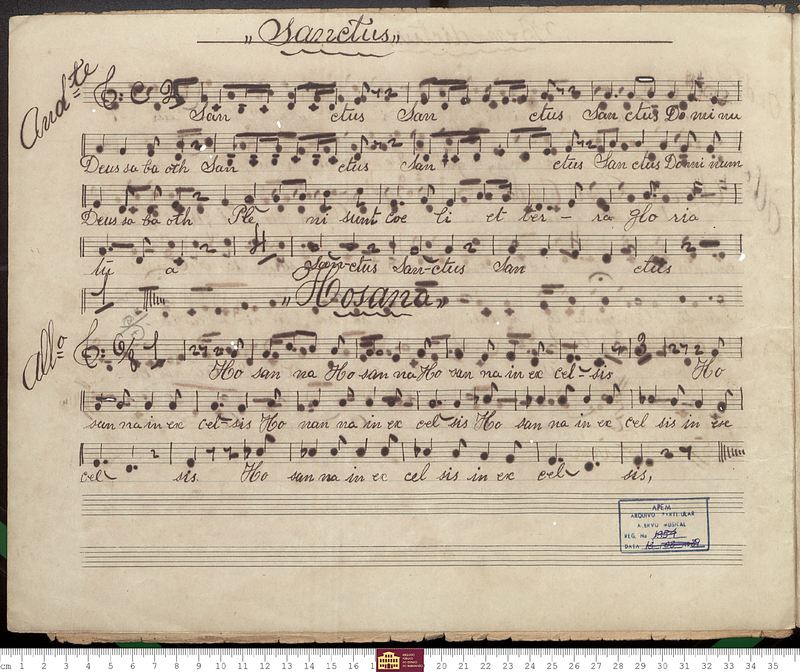 „Sanctus„
Andte
San ctus San ctus San ctus Do mi nu
Deus sa ba oth San ctus San ctus San ctus Domi num
Deus sa ba oth Ple ni sunt coe li et ter - ra glo ria
tu a San-ctus San-ctus San ctus
„Hosana„
Allo
Ho san na Ho san na Ho san na in ex cel-sis Ho
san na in ex cel-sis Ho nan na in ex cel sis Ho san na in ex cel sis in exe
cel sis. Ho san na in ex cel sis in ex cel sis,
APEM
ARQUIVO PARTICULAR
ACERVO MUSICAL
REG. No
DATA
cm 1 2 3 4 5 6 7 8 9 10 11 12 13 14 15 16 20 21 22 23 24 25 26 27 28 29 30 31 32 33 34 35